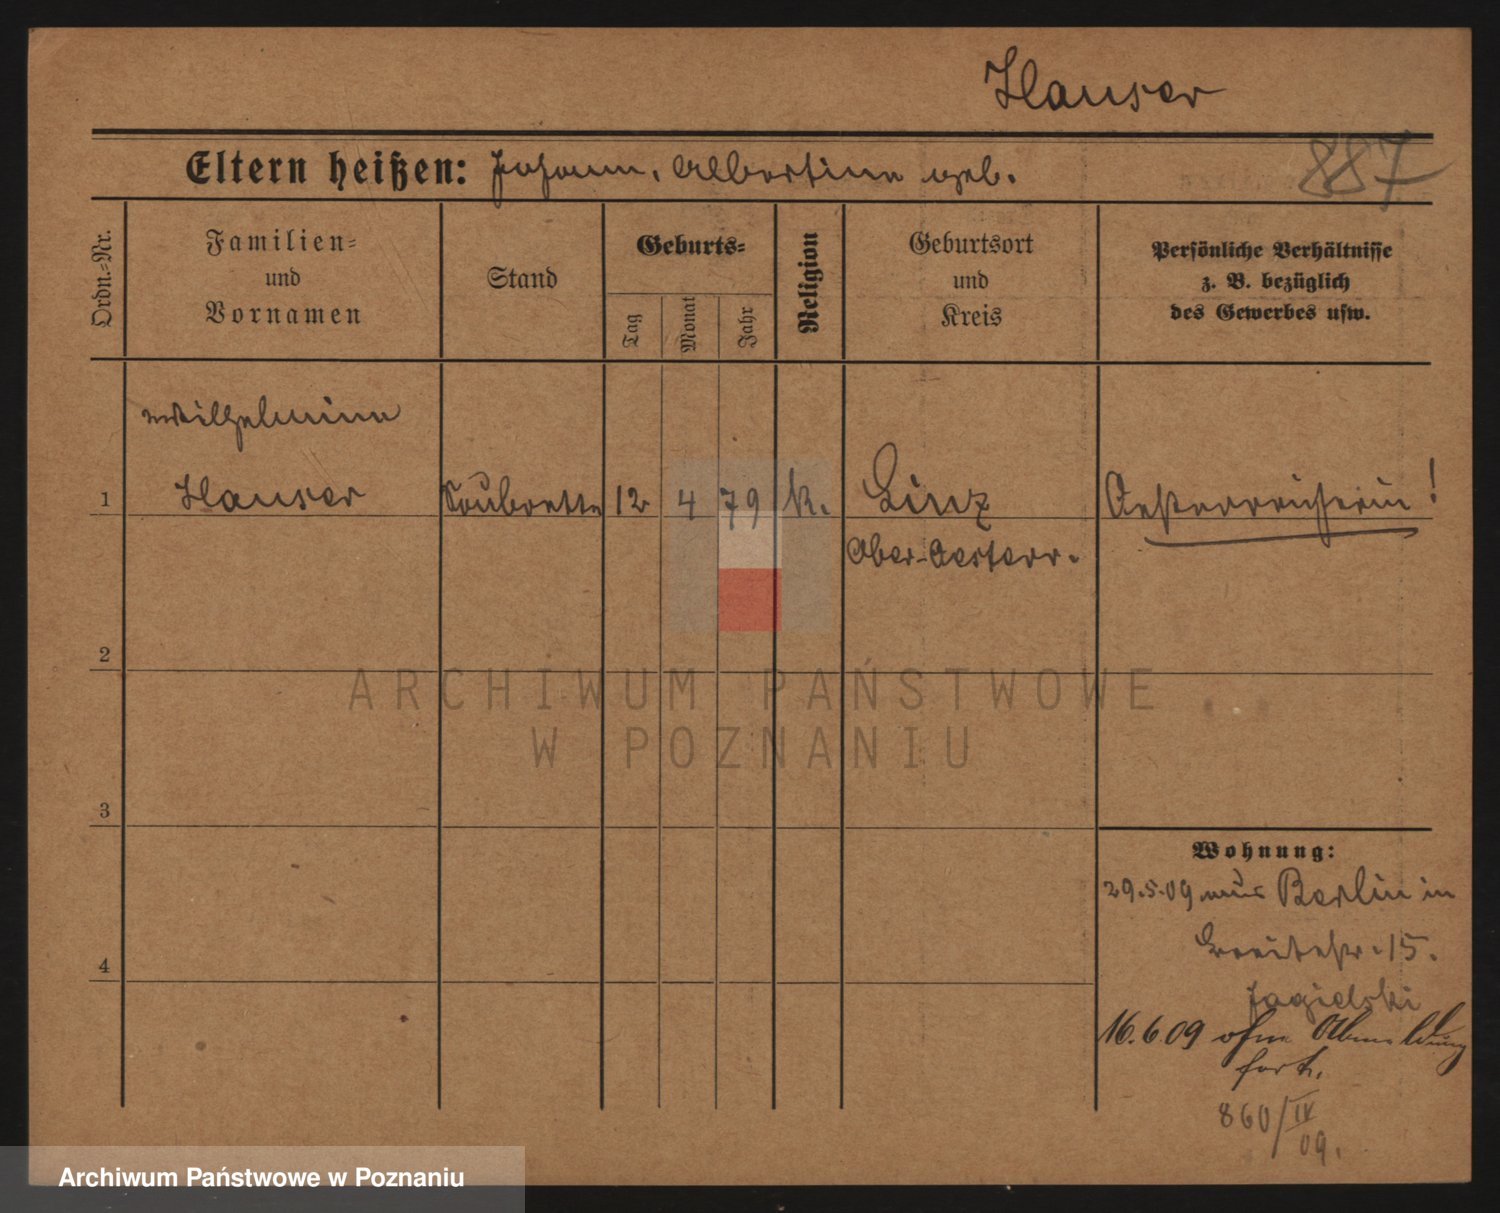 Hauser
887
Eltern heißen: Johann, Albertine geb.
Ordn.-Nr.
Familien-
und
Vornamen
Stand
Geburts-
Tag
Monat
Jahr
Religion
Geburtsort
und
Kreis
Persönliche Verhältnisse
z. B. bezüglich
des Gewerbes usw.
Wilhelmine
1 Hauser Soubrette 12 4 79 k. Linz Oesterreicherin!
Ober-Oesterr.
2
3
4
Wohnung:
29.5.09 aus Berlin in
Breitestr. 15.
Jagielski
16.6.09 ohne Abmeldung
fort.
860/IV
09.
ARCHIWUM PAŃSTWOWE
W POZNANIU
Archiwum Państwowe w Poznaniu